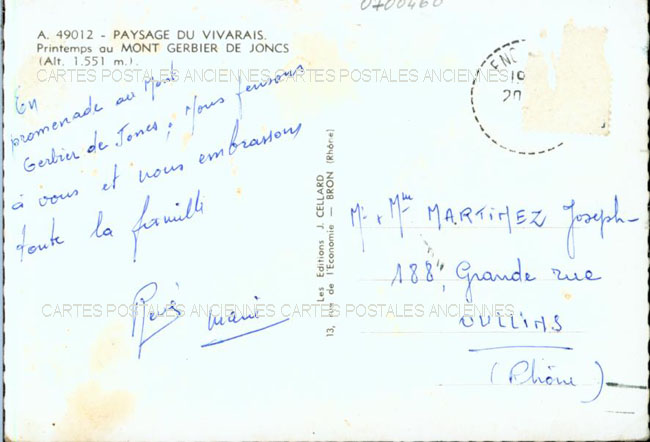 0700460
A. 49012 - PAYSAGE DU VIVARAIS.
Printemps au MONT GERBIER DE JONCS
(Alt. 1.551 m.).
CARTES POSTALES ANCIENNES CARTES POSTALES ANCIENNES
En
promenade au Mont
Gerbier de Joncs, Nous pensons
à vous et vous embrassons
toute la famille
René Marie
13, rue de l'Economie — BRON (Rhône)
Les Editions J. CELLARD
19
20
Mr & Mme MARTINEZ Joseph-
188, Grande rue
OULLINS
(Rhône)
CARTES POSTALES ANCIENNES CARTES POSTALES ANCIENNES